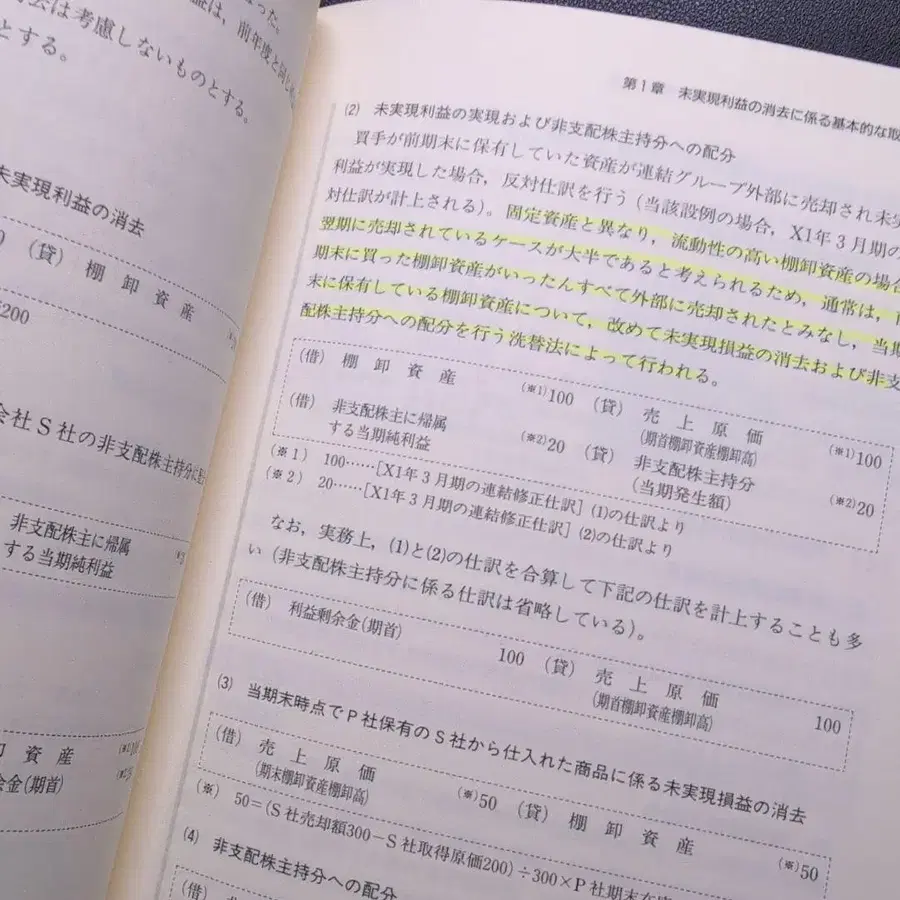 なった。
益は，前年度と同じ
去は考慮しないものとする。
とする。
未実現利益の消去
(貸) 棚卸資産
200
会社S社の非支配株主持分に
非支配株主に帰属
する当期純利益
資産
金(期首)
第1章 未実現利益の消去に係る基本的な取
(2) 未実現利益の実現および非支配株主持分への配分
買手が前期末に保有していた資産が連結グループ外部に売却され未実
利益が実現した場合，反対仕訳を行う（当該設例の場合，X1年3月期の
対仕訳が計上される）。固定資産と異なり，流動性の高い棚卸資産の場合
翌期に売却されているケースが大半であると考えられるため，通常は，
期末に買った棚卸資産がいったんすべて外部に売却されたとみなし，当期
末に保有している棚卸資産について，改めて未実現損益の消去および非支
配株主持分への配分を行う洗替法によって行われる。
(借) 棚卸資産 (※1)100 (貸) 売上原価 (※1)100
(期首棚卸資産棚卸高)
(借) 非支配株主に帰属 (※2)20 (貸) 非支配株主持分 (※2)20
する当期純利益 (当期発生額)
(※1) 100……[X1年3月期の連結修正仕訳] (1)の仕訳より
(※2) 20……[X1年3月期の連結修正仕訳] (2)の仕訳より
なお，実務上，(1)と(2)の仕訳を合算して下記の仕訳を計上することも多
い（非支配株主持分に係る仕訳は省略している）。
(借) 利益剰余金(期首) 100 (貸) 売上原価 100
(期首棚卸資産棚卸高)
(3) 当期末時点でP社保有のS社から仕入れた商品に係る未実現損益の消去
(借) 売上原価 (※)50 (貸) 棚卸資産 (※)50
(期末棚卸資産棚卸高)
(※) 50＝(S社売却額300－S社取得原価200)÷300×P社期末在庫
(4) 非支配株主持分への配分
(借) 非支配株主に帰属